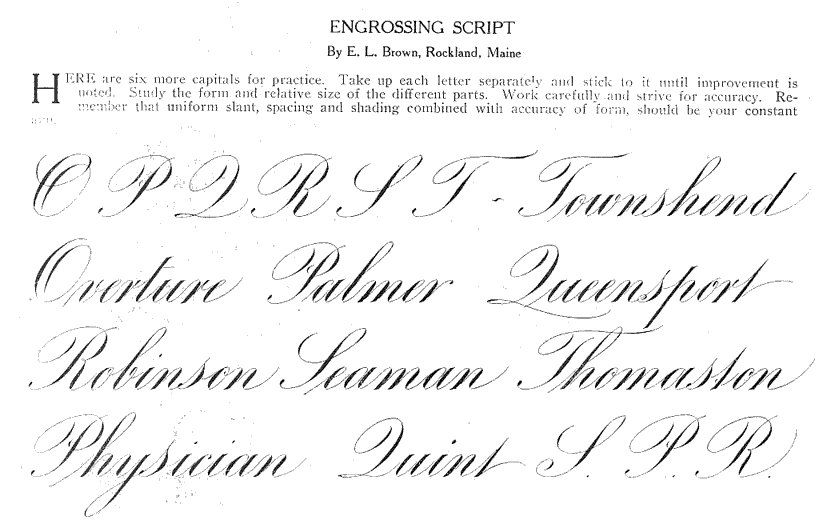 ENGROSSING SCRIPT
By E. L. Brown, Rockland, Maine
HERE are six more capitals for practice. Take up each letter separately and stick to it until improvement is
noted. Study the form and relative size of the different parts. Work carefully and strive for accuracy. Re-
member that uniform slant, spacing and shading combined with accuracy of form, should be your constant
O P Q R S T - Townshend
Overture Palmer Queensport
Robinson Seaman Thomaston
Physician Quint S. P. R.